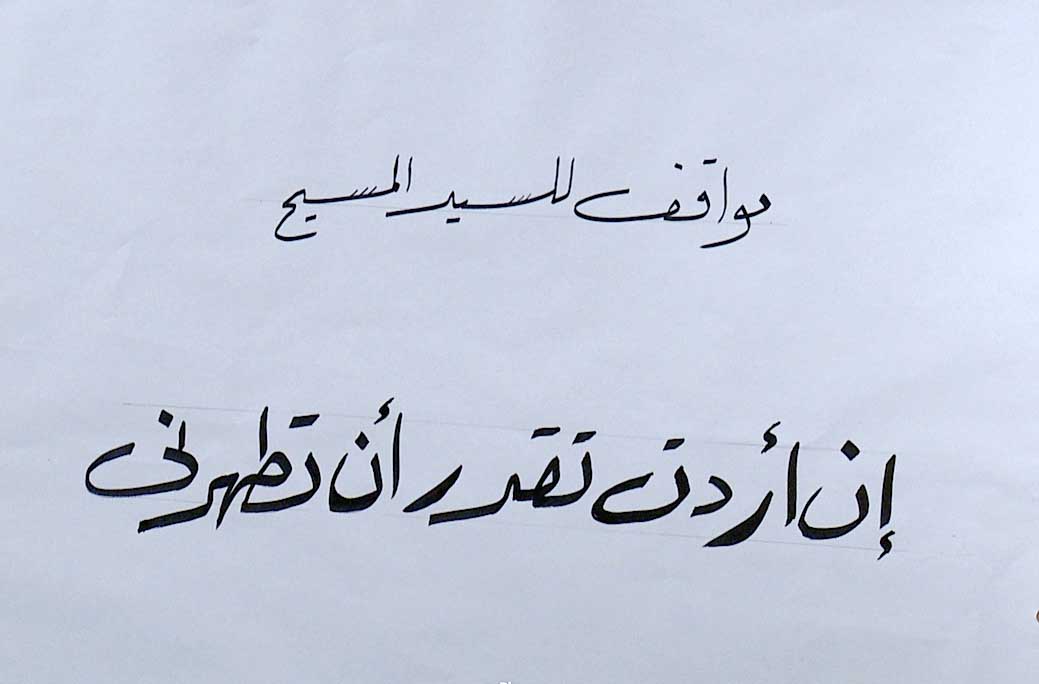 مواقف للسيد المسيح
إن أردت تقدر أن تطهرنى